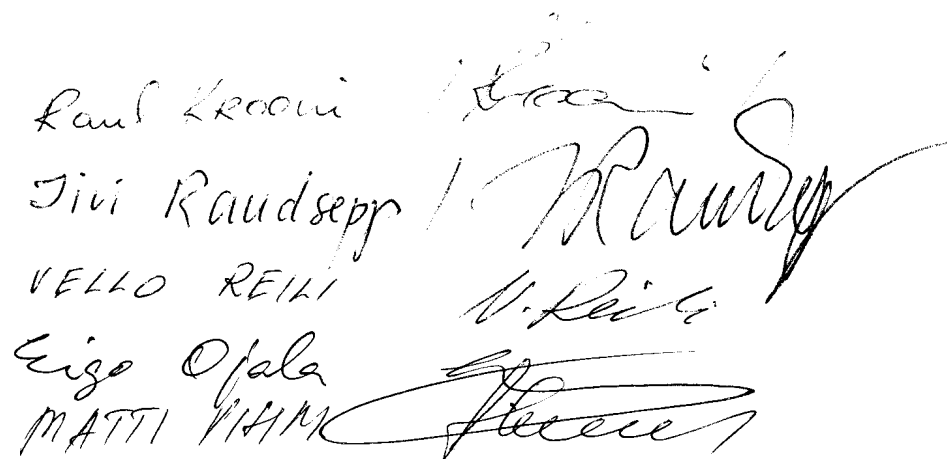 Raul Krooni /
Jiri Raudsepp / Raudsepp
VELLO REILI V. Reili
Eigo Ojala
MATTI PIHM